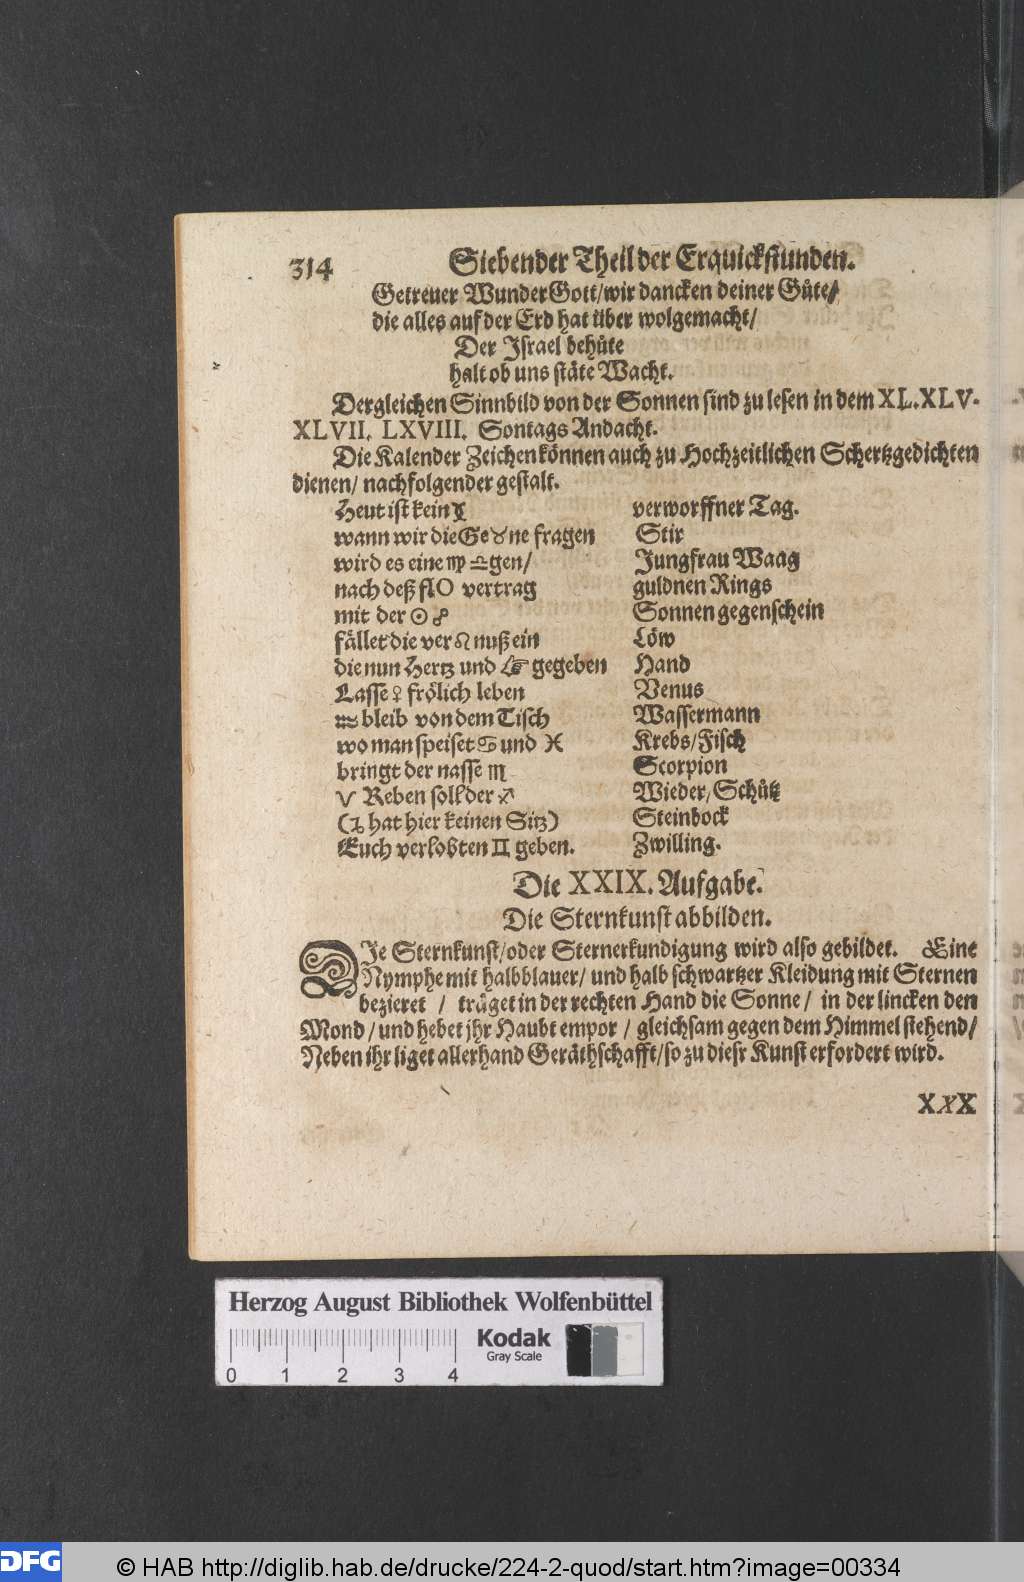 314 Siebender Theil der Erquickstunden.
Getreuer WunderGott/wir dancken deiner Güte/
die alles auf der Erd hat über wolgemacht/
Der Israel behüte
halt ob uns stäte Wacht.
Dergleichen Sinnbild von der Sonnen sind zu lesen in dem XL. XLV.
XLVII. LXVIII. Sontags Andacht.
Die Kalender Zeichen können auch zu Hochzeitlichen Schertzgedichten
dienen/ nachfolgender gestalt.
Heut ist kein verworffner Tag.
wann wir die Ge♉ne fragen Stir
wird es eine ♍ ♎gen/ Jungfrau Waag
nach deß flO vertrag guldnen Rings
mit der ☉ ☍ Sonnen gegenschein
fället die ver♌nuß ein Löw
die nun Hertz und ☞ gegeben Hand
Lasse ♀ frölich leben Venus
♒ bleib von dem Tisch Wassermann
wo man speiset ♋ und ♓ Krebs/Fisch
bringt der nasse ♏ Scorpion
♈ Reben soll der ♐ Wieder/Schütz
(♑ hat hier keinen Sitz) Steinbock
Euch verlobten ♊ geben. Zwilling.
Die XXIX. Aufgabe.
Die Sternkunst abbilden.
DIe Sternkunst/oder Sternerkundigung wird also gebildet. Eine
Nymphe mit halbblauer/ und halb schwartzer Kleidung mit Sternen
bezieret / träget in der rechten Hand die Sonne / in der lincken den
Mond / und hebet jhr Haubt empor / gleichsam gegen dem Himmel stehend/
Neben ihr liget allerhand Geräthschafft/so zu diesr Kunst erfordert wird.
XXX
Herzog August Bibliothek Wolfenbüttel
0 1 2 3 4
Kodak
Gray Scale
DFG
© HAB http://diglib.hab.de/drucke/224-2-quod/start.htm?image=00334